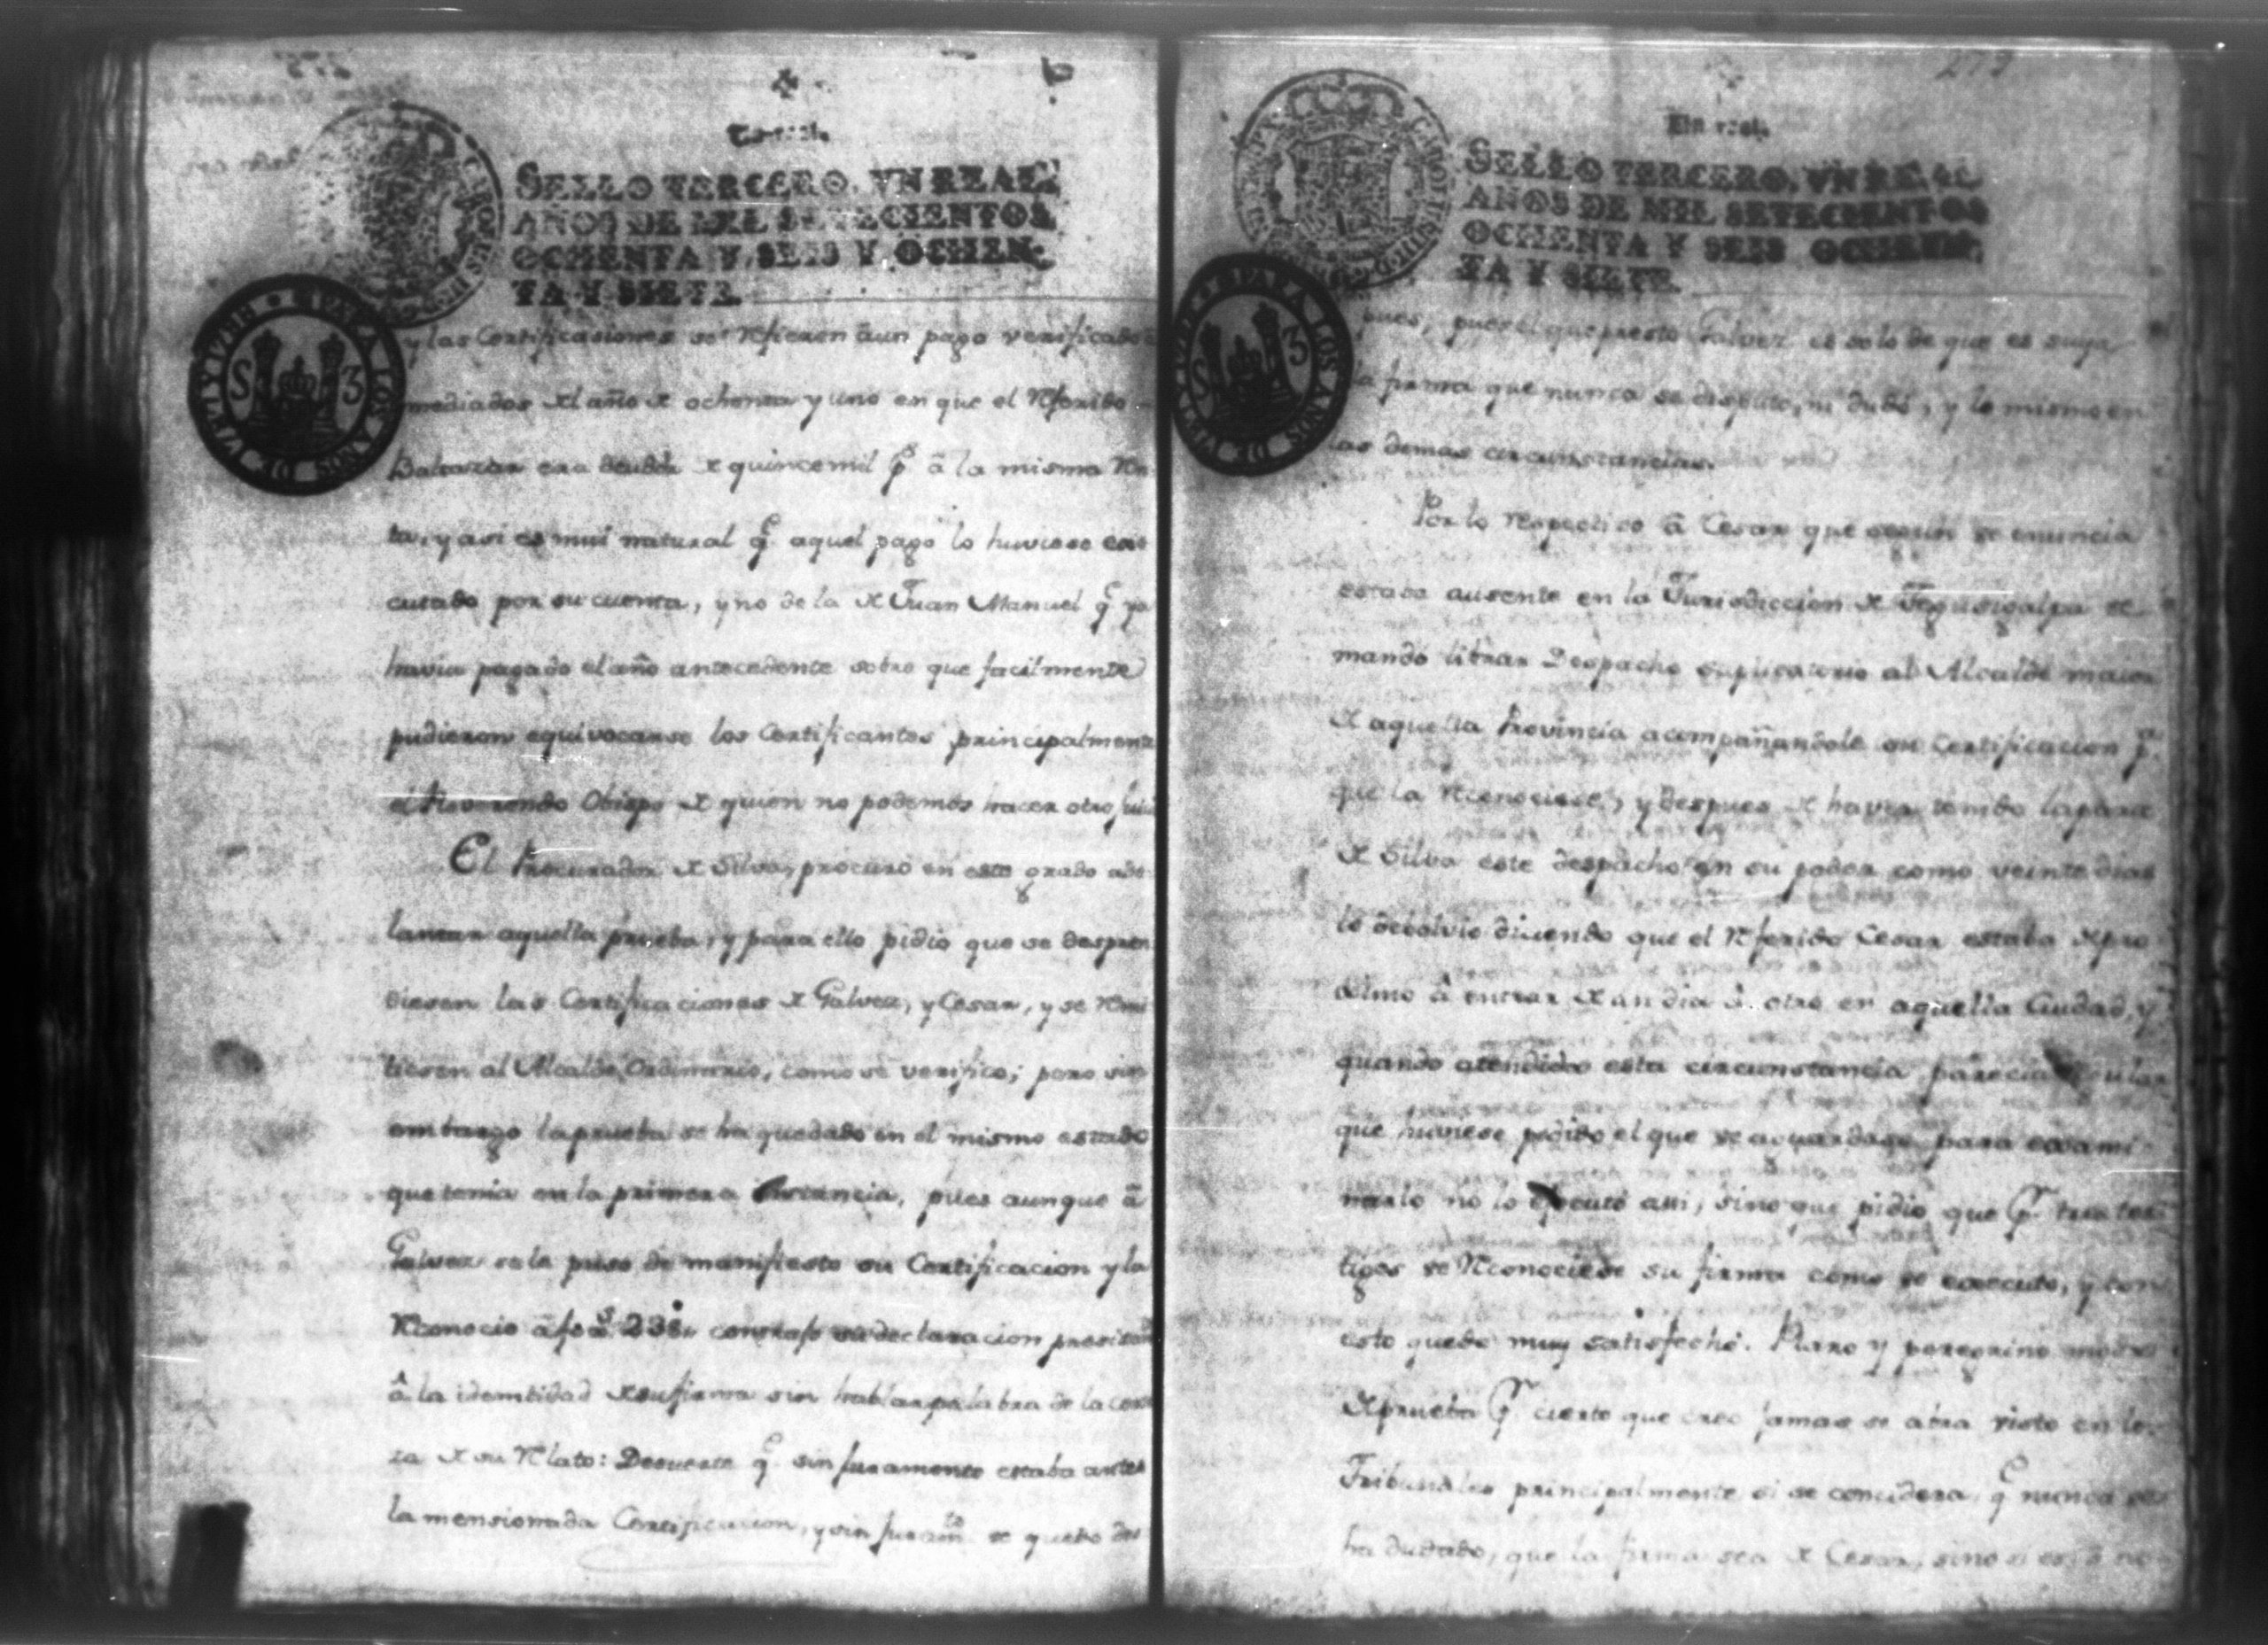 Un real.
SELLO TERCERO, VN REAL,
AÑOS DE MIL SETECIENTOS
OCHENTA Y SEIS Y OCHEN-
TA Y SIETE.
y las Certificasiones se Rfieren âun pago verificado
mediados del año de ochenta y uno en que el Rferido
Baltazar era deudor de quincemil p.s â la misma Rn-
ta, y asi es mui natural q.e aquel pago lo huviese exe
cutado por su cuenta, y no de la de Juan Manuel q.e ya
havia pagado el año antecedente sobre que facilmente
pudieron equivocarse los Certificantes principalmente
el Reverendo Obispo de quien no podemos hacer otro jui
El Procurador de Silva, procuró en este grado ade-
lantar aquella prueba, y para ello pidio que se despren
diesen las Certificaciones de Galvez, y Cesar, y se Rmi
tiesen al Alcalde Ordinario, como se verifico; pero sin
embargo la prueba se ha quedado en el mismo estado
que tenia en la primera Instancia, pues aunque â
Galvez se le puso de manifiesto su Certificacion y la
Rconocio â foxâs 238. contrajo su declaracion presisam
â la identidad de su firma sin hablar palabra de la certe
za de su Rlato: Desuerte q.e sin juramento estaba antes
la mensionada Certificacion, y sin juram.to se quedo des
273
Un real.
SELLO TERCERO, VN REAL
AÑOS DE MIL SETECIENTOS
OCHENTA Y SEIS OCHEN-
TA Y SIETE.
PARA LOS AÑOS DE
S 3
pues, pues el que presto Galvez es solo de que es suya
la firma que nunca se disputo, ni dudó, y lo mismo en
las demas circunstancias.
Por lo Respectivo â Cesar que segun se enuncia
estaba ausente en la Jurisdiccion de Tegusigalpa se
mandó librar Despacho suplicatorio al Alcalde maior
de aquella Provincia acompañandole su Certificacion p.a
que la Rconociese, y despues de haver tenido la parte
de Silva este despacho en su poder como veinte dias
lo debolvio diciendo que el Rferido Cesar estaba de pro
ximo â entrar de un dia â otro en aquella Ciudad, y
quando atendida esta circunstancia parecia Rgular
que huviese pedido el que se aguardase para exami
narlo no lo ejecutó assi, sino que pidio que p.r tres tes
tigos se Rconociese su firma como se executo, y con
esto quedó muy satisfecho. Raro y peregrino modo
de prueba p.r cierto que creo jamas se abra visto en los
Tribunales principalmente si se concidera, q.e nunca se
ha dudado, que la firma sea de Cesar, sino si es ó no